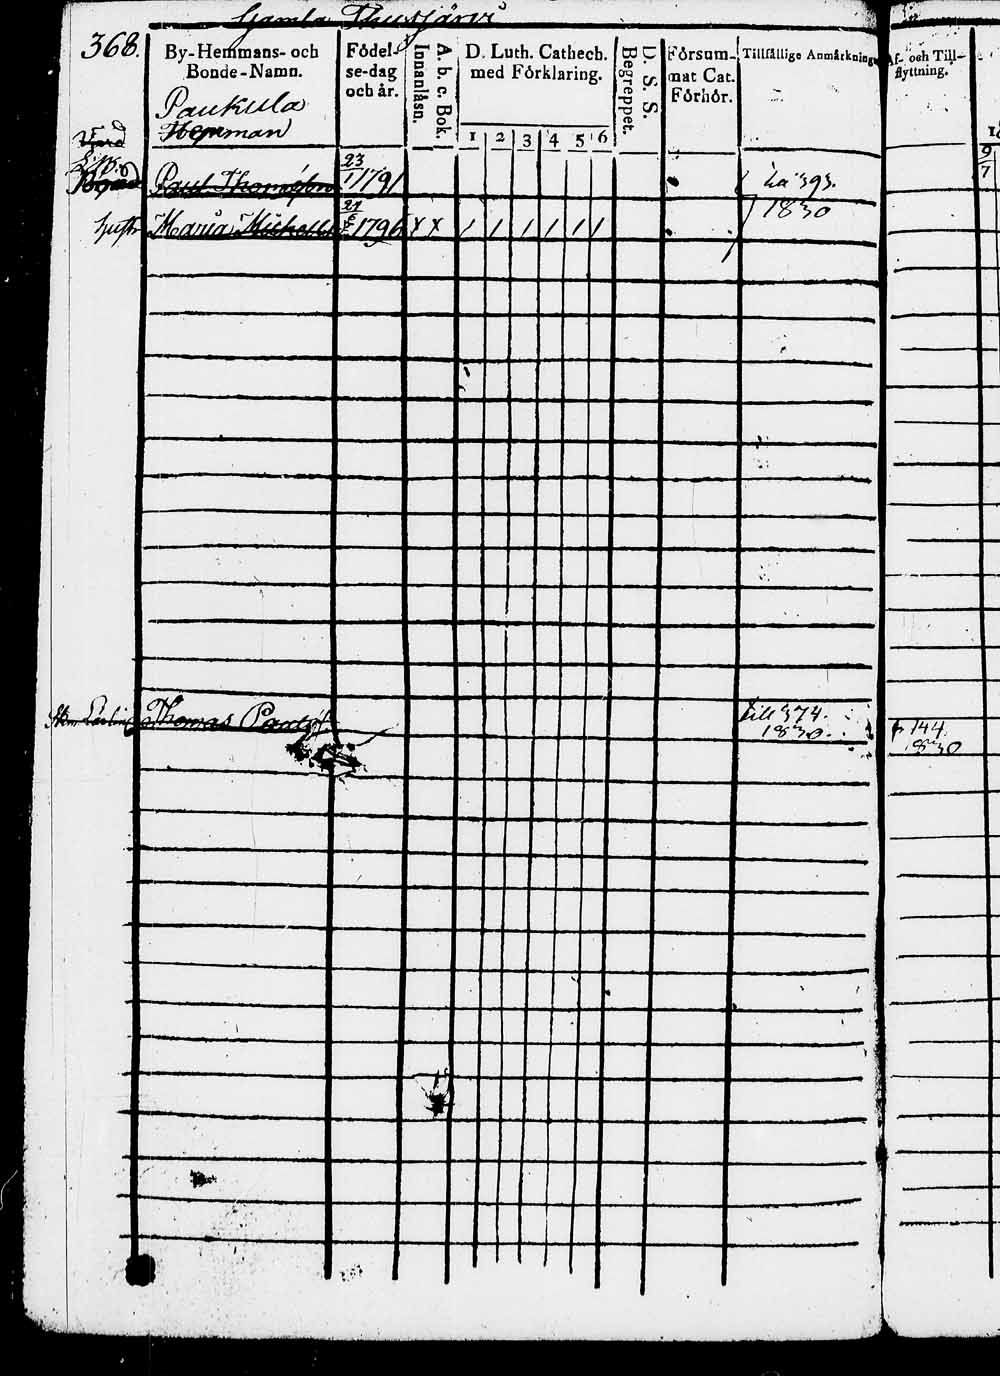 Gamla Thusjärvi
368.
By-Hemmans- och Bonde-Namn.
Födel-se-dag och år.
Innanläsn.
A. b. c. Bok.
D. Luth. Cathech. med Förklaring.
1 2 3 4 5 6
Begreppet.
D. S. S.
Försum-mat Cat. Förhör.
Tillfällige Anmärkningar
Af- och Till-flyttning.
Paukula
Hemman
Paul Thomasson
23
1791
La 393.
1830
hust. Maria Michelsd
1796 x x
Thomas Paulss
till 374.
1830.
p 144
1830
9
7